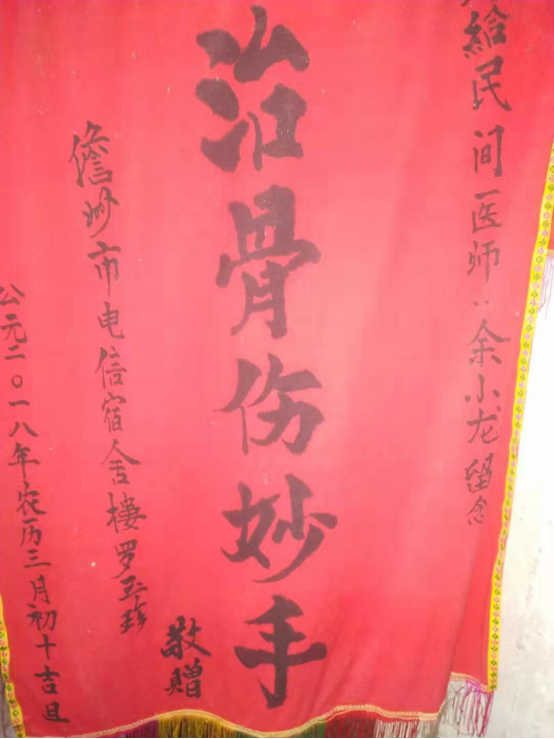 给民间医师：余小龙留念
治骨伤妙手
儋州市电信宿舍楼罗玉珍
敬赠
公元二〇一八年农历三月初十吉旦